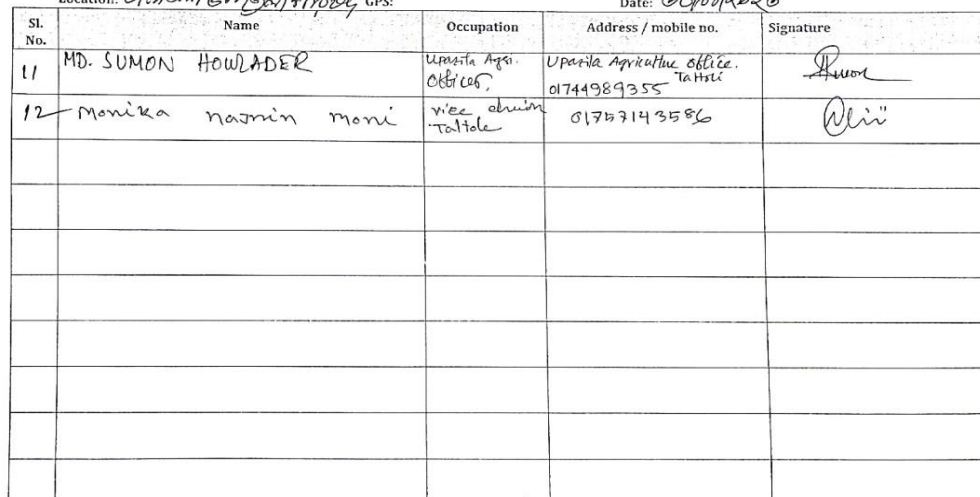 Location: GPS: Date:
Sl. No. Name Occupation Address / mobile no. Signature
11 MD. SUMON HOWLADER Upazila Agri. Officer, Upazila Agriculture Office. Taltoli 01744989355
12 Monika najnin moni Taltole 01757143586